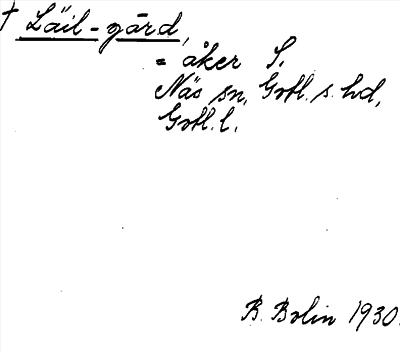 † Läil-gård,
= åker S.
Näs sn, Gotl. s. hd,
Gotl. l.
B. Bolin 1930.